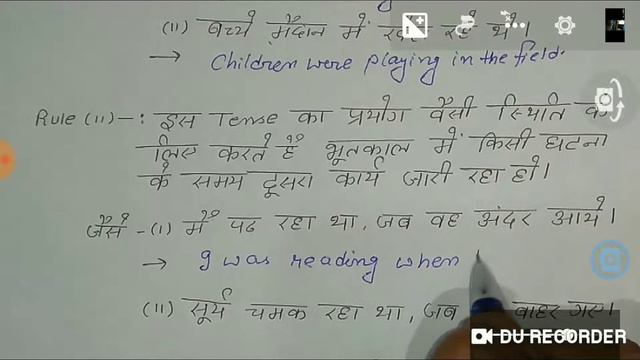 (ii) बच्चे मैदान में खेल रहे थे।
→ Children were playing in the field.
Rule (ii) -: इस Tense का प्रयोग वैसी स्थिति के
लिए करते हैं भूतकाल में किसी घटना
के समय दूसरा कार्य जारी रहा हो।
जैसे - (i) मैं पढ रहा था, जब वह अंदर आये।
→ I was reading when
(ii) सूर्य चमक रहा था, जब बाहर गए।
DU RECORDER